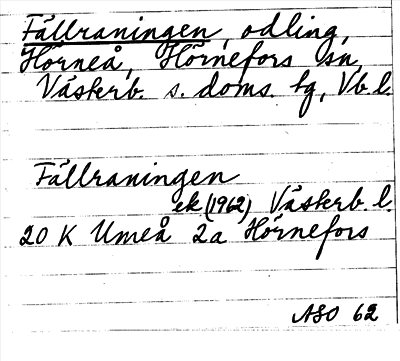 Fällraningen, odling,
Hörneå, Hörnefors sn,
Västerb. s. doms. tg, Vb. l.
Fällraningen
ek (1962) Västerb. l.
20 K Umeå 2a Hörnefors
ASO 62